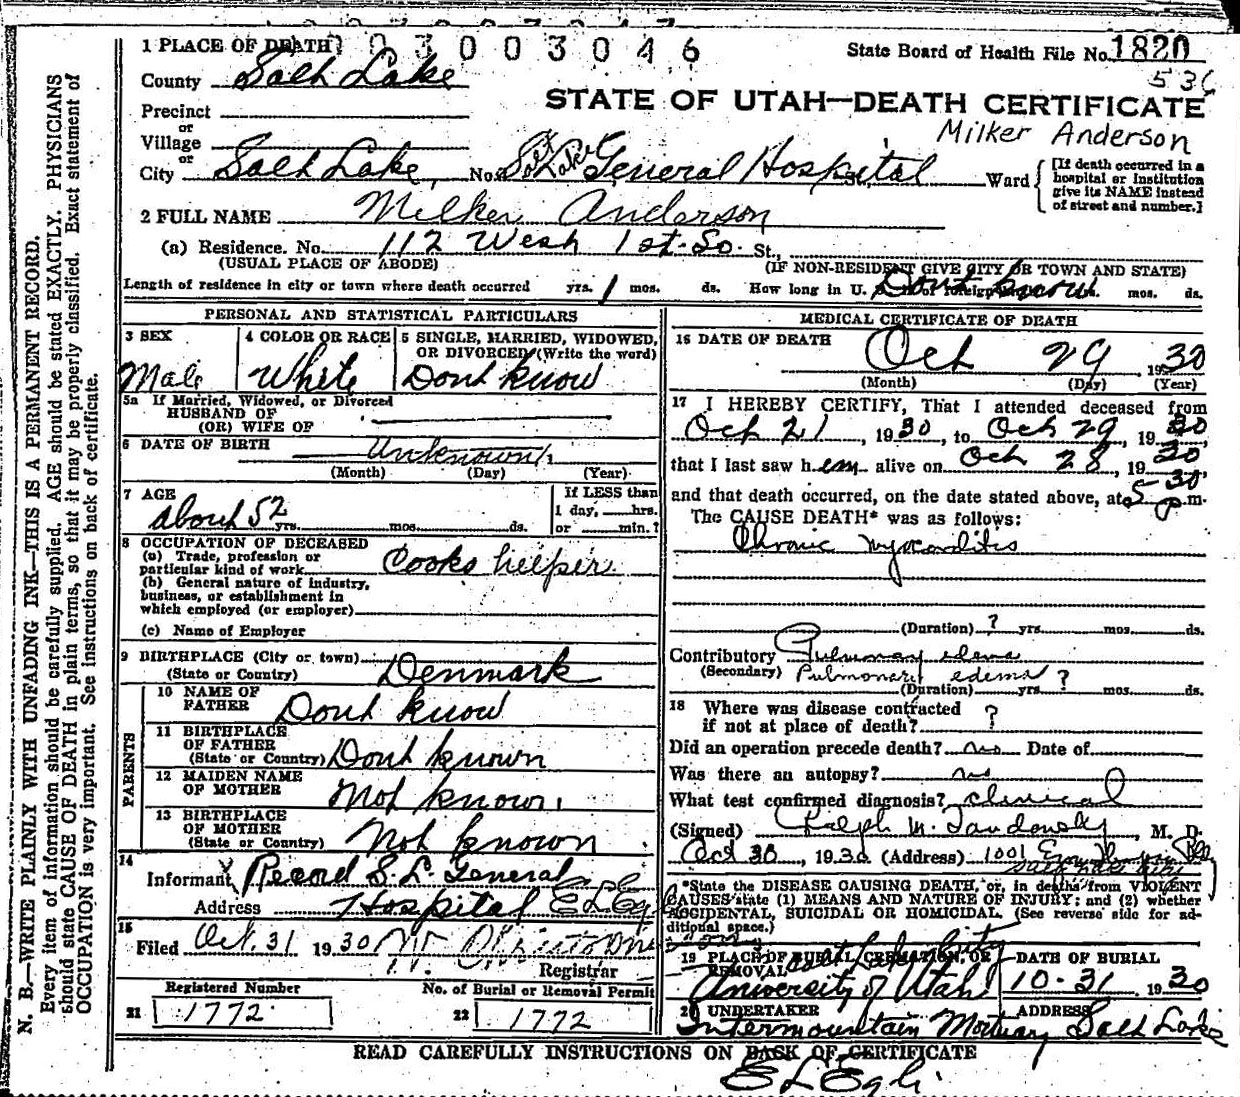 1 PLACE OF DEATH 003003046 State Board of Health File No. 1820
County Salt Lake 536
STATE OF UTAH—DEATH CERTIFICATE
Precinct
or
Village
Milker Anderson
or
City Salt Lake, No. Salt Lake General Hospital St., Ward
[If death occurred in a hospital or institution give its NAME instead of street and number.]
2 FULL NAME Milker Anderson
(a) Residence. No. 112 West 1st. So. St.,
(USUAL PLACE OF ABODE) (IF NON-RESIDENT GIVE CITY OR TOWN AND STATE)
Length of residence in city or town where death occurred yrs. 1 mos. ds. How long in U. S. if of foreign birth Dont know mos. ds.
PERSONAL AND STATISTICAL PARTICULARS
3 SEX Male
4 COLOR OR RACE White
5 SINGLE, MARRIED, WIDOWED, OR DIVORCED (Write the word) Dont know
5a If Married, Widowed, or Divorced
HUSBAND OF
(OR) WIFE OF
6 DATE OF BIRTH Unknown
(Month) (Day) (Year)
7 AGE about 52 yrs. mos. ds.
If LESS than 1 day, hrs. or min.?
8 OCCUPATION OF DECEASED
(a) Trade, profession or particular kind of work Cooks helper
(b) General nature of industry, business, or establishment in which employed (or employer)
(c) Name of Employer
9 BIRTHPLACE (City or town)
(State or Country) Denmark
PARENTS
10 NAME OF FATHER Dont know
11 BIRTHPLACE OF FATHER (State or Country) Dont known
12 MAIDEN NAME OF MOTHER Not known
13 BIRTHPLACE OF MOTHER (State or Country) Not known
14 Informant Record S. L. General
Address Hospital E L Egli
15 Filed Oct. 31 1930
Registrar
Registered Number No. of Burial or Removal Permit
21 1772 22 1772
MEDICAL CERTIFICATE OF DEATH
16 DATE OF DEATH Oct 29, 1930
(Month) (Day) (Year)
17 I HEREBY CERTIFY, That I attended deceased from
Oct 21, 1930, to Oct 29, 1930
that I last saw h em alive on Oct 28, 1930,
and that death occurred, on the date stated above, at 5 30 p m.
The CAUSE DEATH* was as follows:
Chronic myocarditis
(Duration) ? yrs. mos. ds.
Contributory Pulmonary edema
(Secondary) Pulmonary edema ?
(Duration) yrs. mos. ds.
18 Where was disease contracted
if not at place of death? ?
Did an operation precede death? no Date of
Was there an autopsy? no
What test confirmed diagnosis? clinical
(Signed) Ralph M. Tandowsky, M. D.
Oct 30, 1930 (Address) 1001
*State the DISEASE CAUSING DEATH, or, in deaths from VIOLENT
CAUSES state (1) MEANS AND NATURE OF INJURY; and (2) whether
ACCIDENTAL, SUICIDAL OR HOMICIDAL. (See reverse side for additional space.)
19 PLACE OF BURIAL, CREMATION, OR REMOVAL Salt Lake City
University of Utah
DATE OF BURIAL 10-31 1930
20 UNDERTAKER ADDRESS
Intermountain Mortuary Salt Lake
READ CAREFULLY INSTRUCTIONS ON BACK OF CERTIFICATE
E L Egli
N. B.—WRITE PLAINLY WITH UNFADING INK—THIS IS A PERMANENT RECORD.
Every item of information should be carefully supplied. AGE should be stated EXACTLY. PHYSICIANS
should state CAUSE OF DEATH in plain terms, so that it may be properly classified. Exact statement of
OCCUPATION is very important. See instructions on back of certificate.